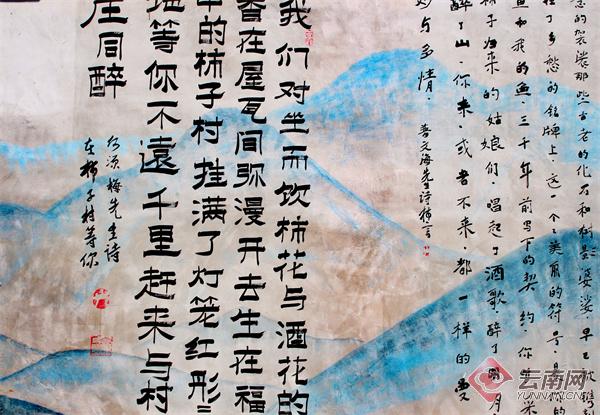 意的袈裟那些古老的化石和树影婆娑,早已被镌刻
在了乡愁的铭牌上,这一个个美丽的符号,是你的
鱼和我的鱼,三千年前写下的契约,你
柿子归来的姑娘们,唱起了酒歌,醉了明月
醉了山,你来,或者不来,都一样的曼
妙与多情.
文海先生诗
我们对坐而饮柿花与酒花的
香在屋瓦间弥漫开去生在福
中的柿子村挂满了灯笼红彤
等你不遠千里赶来与村
庄同醉
何源梅先生诗
在柿子村等你
云南网
YUNNAN.CN